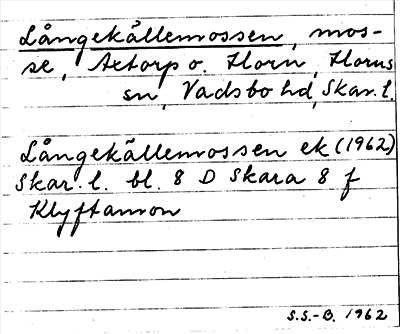 Långekällemossen, mos-
se, Axtorp o. Horn, Horns
sn, Vadsbo hd, Skar. l.
Långekällemossen ek (1962)
Skar. l. bl. 8 D Skara 8 f
Klyftamon
S.S.-B. 1962